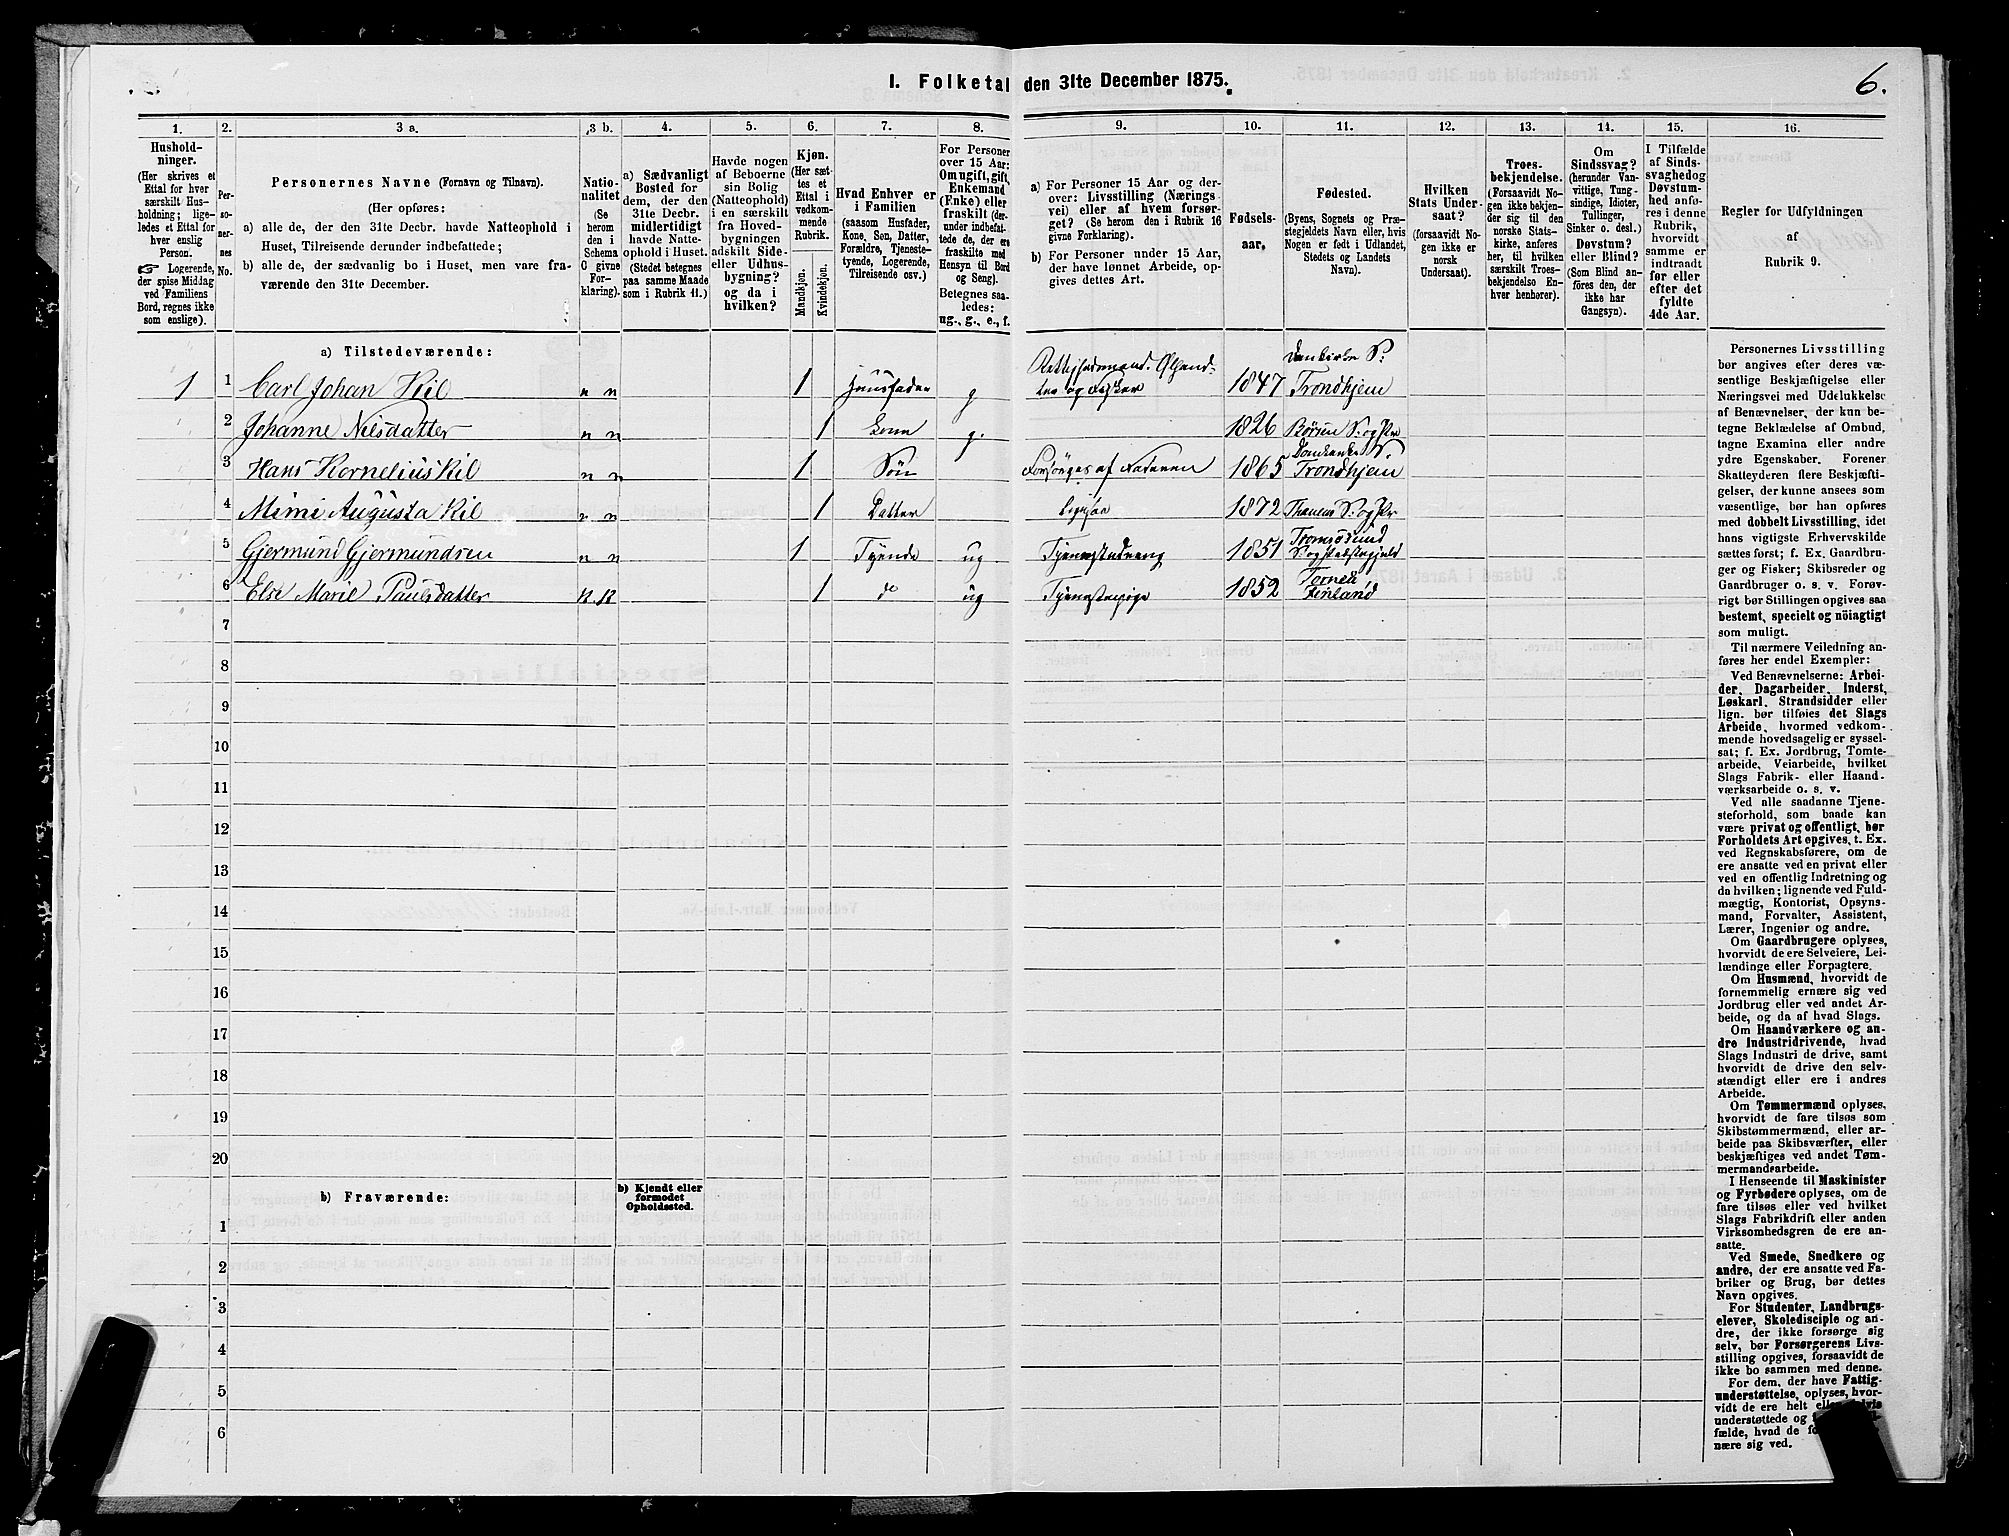 I. Folketal den 31te December 1875.
6.
1.
2.
3 a.
3 b.
4.
5.
6.
7.
8.
9.
10.
11.
12.
13.
14.
15.
16.
Hushold-
ninger.
(Her skrives et
Ettal for hver
særskilt Hus-
holdning; lige-
ledes et Ettal for
hver enslig
Person.
Logerende,
der spise Middag
ved Familiens
Bord, regnes ikke
som enslige).
Per-
so-
ner-
nes
No.
Personernes Navne (Fornavn og Tilnavn).
(Her opføres:
a) alle de, der den 31te Decbr. havde Natteophold i
Huset, Tilreisende derunder indbefattede;
b) alle de, der sædvanlig bo i Huset, men vare fra-
værende den 31te December.
Natio-
nalitet
(Se
herom
den i
Schema
C givne
For-
klaring).
a) Sædvanligt
Bosted for
dem, der den
31te Decbr.
midlertidigt
havde Natte-
ophold i Huset.
(Stedet betegnes
paa samme Maade
som i Rubrik 11.)
Havde nogen
af Beboerne
sin Bolig
(Natteophold)
i en særskilt
fra Hoved-
bygningen
adskilt Side-
eller Udhus-
bygning?
og da i
hvilken?
Kjøn.
(Her sæt-
tes et
Ettal i
vedkom-
mende
Rubrik.
Mandkjøn.
Kvindekjøn.
Hvad Enhver er
i Familien
(saasom Husfader,
Kone, Søn, Datter,
Forældre, Tjeneste-
tyende, Logerende,
Tilreisende osv.)
For Personer
over 15 Aar:
Om ugift, gift,
Enkemand
(Enke) eller
fraskilt (der-
under indbefat-
tede de, der ere
fraskilte med
Hensyn til Bord
og Seng).
Betegnes saa-
ledes:
ug., g., e., f.
a) For Personer 15 Aar og der-
over: Livsstilling (Nærings-
vei) eller af hvem forsør-
get? (Se herom den i Rubrik 16
givne Forklaring).
b) For Personer under 15 Aar,
der have lønnet Arbeide, op-
gives dettes Art.
Fødsels-
aar.
Fødested.
(Byens, Sognets og Præ-
stegjeldets Navn eller, hvis
Nogen er født i Udlandet,
Stedets og Landets
Navn).
Hvilken
Stats Under-
saat?
(forsaavidt No-
gen ikke er
norsk
Undersaat).
Troes-
bekjendelse.
(Forsaavidt No-
gen ikke bekjen-
der sig til den
norske Stats-
kirke, anføres
her, til hvilken
særskilt Troes-
bekjendelse En-
hver henhører).
Om
Sindssvag?
(herunder Van-
vittige, Tung-
sindige, Idioter,
Tullinger,
Sinker o. desl.)
Døvstum?
eller Blind?
(Som Blind an-
føres den, der
ikke har
Gangsyn).
I Tilfælde
af Sinds-
svaghed og
Døvstum-
hed anfø-
res i denne
Rubrik,
hvorvidt
samme er
indtraadt
før eller
efter det
fyldte
4de Aar.
Regler for Udfyldningen
af
Rubrik 9.
a) Tilstedeværende:
1 1 Carl Johan Kil n n 1 Huusfader g og Fisker 1847 Trondhjem
2 Johanne Nilsdatter n n 1 g. 1826 Børsen S. og Pr
3 Hans Kornelius Kil n n 1 Søn Forsørges af Faderen 1865 Domkirke S Trondhjem
4 Mimi Augusta Kil n n 1 Datter 1872 S. og Pr
5 Gjermund Gjermundsen n n 1 Tyende ug 1851 Tromsøsund
6 Else Marie Paulsdatter n n 1 do ug Tjenestepige 1852 Torneå Finland
7
8
9
10
11
12
13
14
15
16
17
18
19
20
b) Fraværende:
b) Kjendt eller
formodet
Opholdssted.
1
2
3
4
5
6
Personernes Livsstilling
bør angives efter deres væ-
sentlige Beskjæftigelse eller
Næringsvei med Udelukkelse
af Benævnelser, der kun be-
tegne Beklædelse af Ombud,
tagne Examina eller andre
ydre Egenskaber. Forener
Skatteyderen flere Beskjæfti-
gelser, der kunne ansees som
væsentlige, bør han opføres
med dobbelt Livsstilling, idet
hans vigtigste Erhvervskilde
sættes først; f. Ex. Gaardbru-
ger og Fisker; Skibsreder og
Gaardbruger o. s. v. Forøv-
rigt bør Stillingen opgives saa
bestemt, specielt og nöiagtigt
som muligt.
Til nærmere Veiledning an-
føres her endel Exempler:
Ved Benævnelserne: Arbei-
der, Dagarbeider, Inderst,
Løskarl, Strandsidder eller
lign. bør tilføies det Slags
Arbeide, hvormed vedkom-
mende hovedsagelig er syssel-
sat; f. Ex. Jordbrug, Tomte-
arbeide, Veiarbeide, hvilket
Slags Fabrik- eller Haand-
værksarbeide o. s. v.
Ved alle saadanne Tjene-
steforhold, som baade kan
være privat og offentligt, bør
Forholdets Art opgives, t. Ex.
ved Regnskabsførere, om de
ere ansatte ved en privat eller
ved en offentlig Indretning og
da hvilken; lignende ved Fuld-
mægtig, Kontorist, Opsyns-
mand, Forvalter, Assistent,
Lærer, Ingeniør og andre.
Om Gaardbrugere oplyses,
hvorvidt de ere Selveiere, Lei-
lændinge eller Forpagtere.
Om Husmænd, hvorvidt de
fornemmelig ernære sig ved
Jordbrug eller ved andet Ar-
beide, og da af hvad Slags.
Om Haandværkere og an-
dre Industridrivende, hvad
Slags Industri de drive, samt
hvorvidt de drive den selv-
stændigt eller ere i andres
Arbeide.
Om Tømmermænd oplyses,
hvorvidt de fare tilsøs som
Skibstømmermænd, eller ar-
beide paa Skibsværfter, eller
beskjæftiges ved andet Tøm-
mermandsarbeide.
I Henseende til Maskinister
og Fyrbødere oplyses, om de
fare tilsøs eller ved hvilket
Slags Fabrikdrift eller anden
Virksomhedsgren de ere an-
satte.
Ved Smede, Snedkere og
andre, der ere ansatte ved Fa-
briker og Brug, bør dettes
Navn opgives.
For Studenter, Landbrugs-
elever, Skoledisciple og an-
dre, der ikke forsørge sig
selv, bør Forsørgerens Livs-
stilling opgives, forsaavidt de
ikke bo sammen med denne.
For dem, der have Fattig-
understøttelse, oplyses, hvor-
vidt de ere helt
understøttede og
fælde, hvad de
nære sig ved.